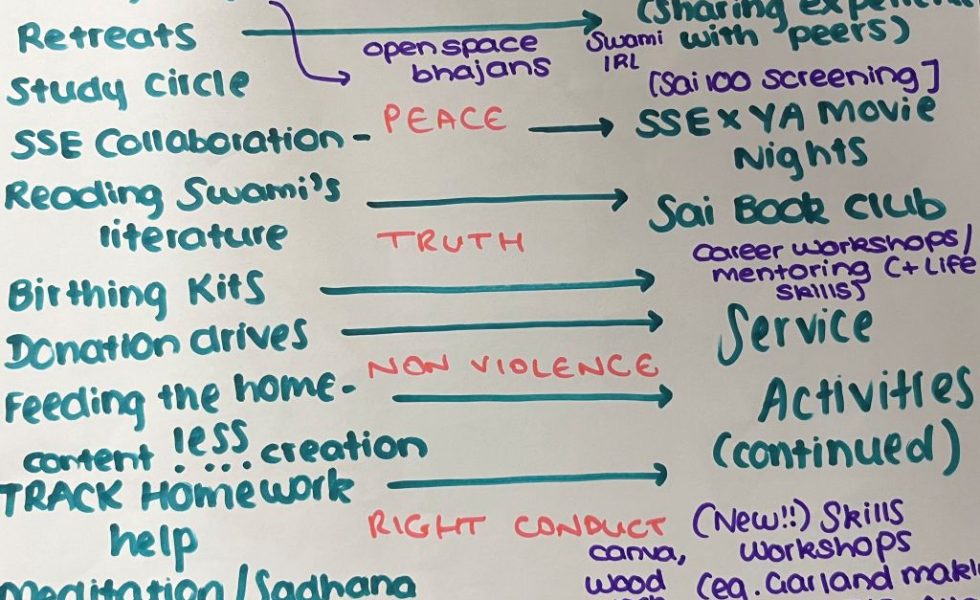 (Sharing
Retreats
open space
bhajans
Swami
IRL
with peers)
Study circle
[Sai 100 Screening]
SSE Collaboration -
PEACE
SSE x YA Movie
Nights
Reading Swami's
literature
TRUTH
Sai Book Club
career workshops/
mentoring (+ Life
skills)
Birthing Kits
Donation drives
Service
NON VIOLENCE
Feeding the home-
less
Activities
(continued)
content creation
TRACK Homework
help
RIGHT CONDUCT
(New!!) Skills
workshops
canva,
wood
(eg. Garland
Meditation / Sadhana